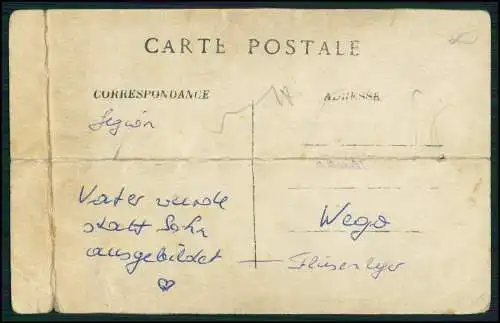 CARTE POSTALE
CORRESPONDANCE
ADRESSE
Legion
Vater wurde
statt Sohn
ausgebildet
Wego
Fliesenleger